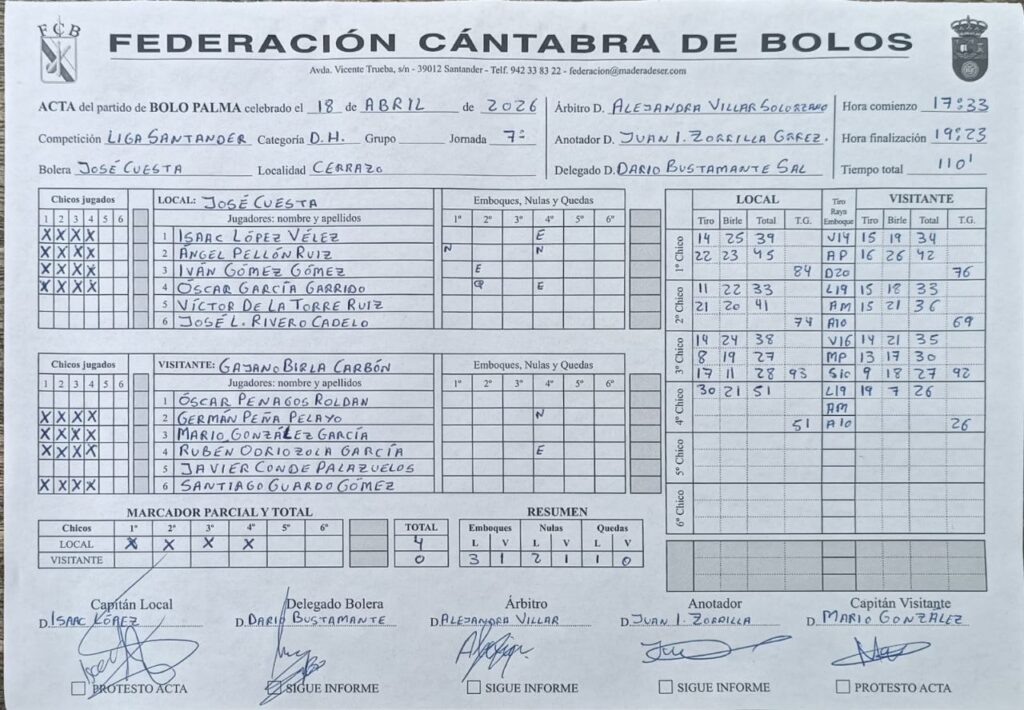 FCB
FEDERACIÓN CÁNTABRA DE BOLOS
Avda. Vicente Trueba, s/n - 39012 Santander - Telf. 942 33 83 22 - federacion@maderadeser.com
ACTA del partido de BOLO PALMA celebrado el 18 de ABRIL de 2026
Competición LIGA SANTANDER Categoría D.H. Grupo Jornada 7ª
Bolera JOSÉ CUESTA Localidad CERRAZO
Árbitro D. ALEJANDRA VILLAR SOLORZANO
Anotador D. JUAN I. ZORRILLA GÁREZ.
Delegado D. DARIO BUSTAMANTE SAL
Hora comienzo 17:33
Hora finalización 19:23
Tiempo total 110'
Chicos jugados LOCAL: JOSÉ CUESTA Emboques, Nulas y Quedas
1 2 3 4 5 6 Jugadores: nombre y apellidos 1º 2º 3º 4º 5º 6º
X X X X 1 ISAAC LÓPEZ VÉLEZ E
X X X X 2 ÁNGEL PELLÓN RUIZ N N
X X X X 3 IVÁN GÓMEZ GÓMEZ E
X X X X 4 ÓSCAR GARCÍA GARRIDO E
5 VÍCTOR DE LA TORRE RUIZ
6 JOSÉ L. RIVERO CADELO
Chicos jugados VISITANTE: GAJANO BIRLA CARBÓN Emboques, Nulas y Quedas
1 2 3 4 5 6 Jugadores: nombre y apellidos 1º 2º 3º 4º 5º 6º
1 ÓSCAR PENAGOS ROLDAN
X X X X 2 GERMÁN PEÑA PELAYO N
X X X X 3 MARIO GONZÁLEZ GARCÍA
X X X X 4 RUBÉN ODRIOZOLA GARCÍA E
5 JAVIER CONDE PALAZUELOS
X X X X 6 SANTIAGO GUARDO GÓMEZ
LOCAL Tiro Raya Emboque VISITANTE
Tiro Birle Total T.G. Tiro Birle Total T.G.
1º Chico
14 25 39 V14 15 19 34
22 23 45 AP 16 26 42
84 D20 76
2º Chico
11 22 33 L19 15 18 33
21 20 41 AM 15 21 36
74 A10 69
3º Chico
14 24 38 V16 14 21 35
8 19 27 MP 13 17 30
17 11 28 93 S10 9 18 27 92
4º Chico
30 21 51 L19 19 7 26
AM
51 A10 26
5º Chico
6º Chico
MARCADOR PARCIAL Y TOTAL
Chicos 1º 2º 3º 4º 5º 6º TOTAL
LOCAL X X X X 4
VISITANTE 0
RESUMEN
Emboques Nulas Quedas
L V L V L V
3 1 2 1 1 0
Capitán Local Delegado Bolera Árbitro Anotador Capitán Visitante
D. ISAAC LÓPEZ D. DARIO BUSTAMANTE D. ALEJANDRA VILLAR D. JUAN I. ZORRILLA D. MARIO GONZÁLEZ
PROTESTO ACTA SIGUE INFORME SIGUE INFORME SIGUE INFORME PROTESTO ACTA